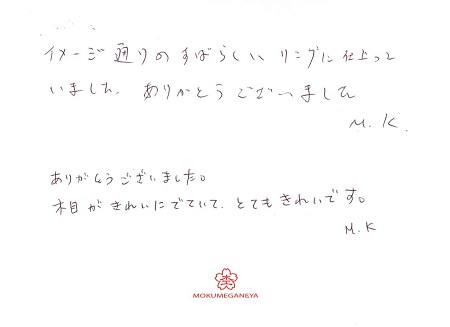 イメージ通りのすばらしいリングに仕上って
いました。ありがとうございました
M.K.
ありがとうございました。
木目がきれいにでていて、とてもきれいです。
M.K
MOKUMEGANEYA